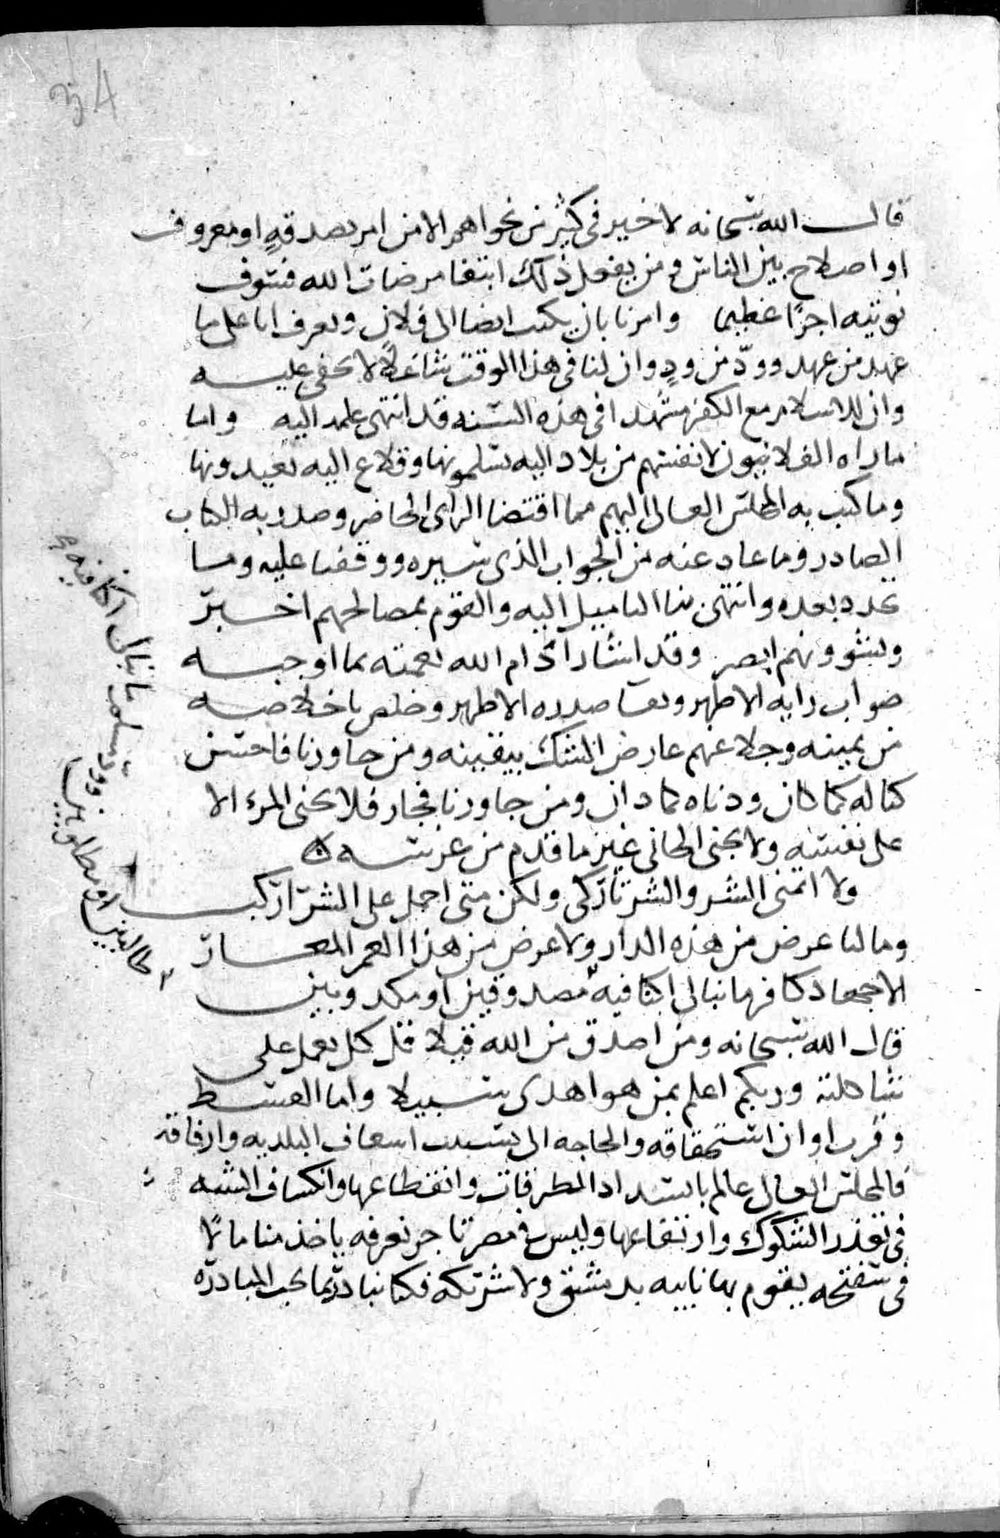 34
قال الله سبحانه لا خير فى كثير من نجواهم الا من امر بصدقةٍ او معروف
او اصلاح بين الناس ومن يفعل ذلك ابتغا مرضات الله فسوف
نوتيه اجرًا عظيما وامرنا بان يكتب ايضا الى فلان ويعرف انا على ما
عهد من عهد وودّ من ودٍ وان لنا فى هذا الوقت شاغلاً لا يخفى عليه
وان للاسلام مع الكفر مشهدا فى هذه السنه قد انتهى علمه اليه واما
ما راه الفلانيون لانفسهم من بلاد اليه يسلمونها وقلاع اليه يعيدونها
وما كتب به المجلس العالى اليهم مما اقتضا الراى الحاضر وصدر به الكتاب
الصادر وما عاد عنه من الجواب الذى سيره ووقفنا عليه وما
تجدد بعده وانتهى منا التاميل اليه والقوم بمصالحهم اخبرّ
وبشوونهم ابصر وقد اشار ادام الله نعمته بما اوجبه
صواب رايه الاظهر وبعا صدره الاطهر وخلص باخلاصه
من يمينه وجلا عنهم عارض الشك بيقينه ومن جاورنا فاحسن
كنا له كما كان ودناه كما دان ومن جاورنا فجار فلا يجنى المرء الا
على نفسه ولا يجنى الجانى غير ما قدم من غرسه
ولا اتمنى الشر والشر تاركى ولكن متى احمل على الشرّ اركب
وما لنا عرض من هذه الدار ولا عوض من هذا العمر المعارّ
الا جهاد كافر ما نبالى اكنا فيه مصدوقين او مكذوبين
قال الله سبحانه ومن اصدق من الله قيلا قل كل يعمل على
شاكلته وربكم اعلم بمن هو اهدى سبيلا واما القسط
وقرب اوان استحقاقه والحاجه الى اسعاف البلديه وارفاقه
فالمجلس العالى عالم بانسداد الطرقات وانقطاعها وانكساف الشمه
فى تعذر الشكوك وارتفاعها وليس فى مصر تاجر نعرفه ياخذ منا مالاً
فى سفتجه يقوم بها نايبه بدمشق ولا شركه فكنا نبادر بما يجب المبادره
ما نبالى اكنا فيه
طالبين او مطلوبين